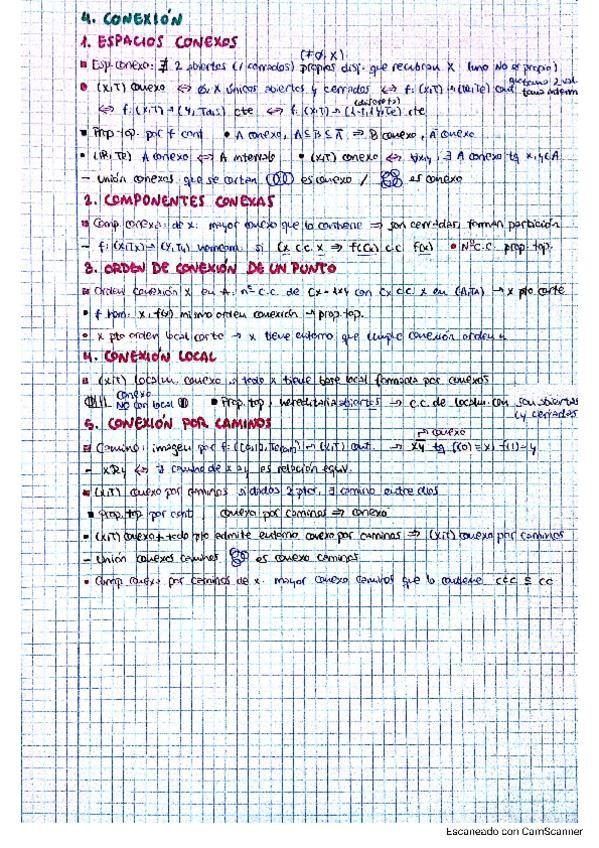 4. CONEXIÓN
1. ESPACIOS CONEXOS
(≠ ∅, X)
Esp. conexo: ∄ 2 abiertos (/ cerrados) propios disj. que recubran X (uno NO es propio)
(X,T) conexo ⇔ ∅, X únicos abiertos y cerrados ⇔ f: (X,T) → (R,Te) cont
⇔ f: (X,T) → (Y, Tdis) cte ⇔ f: (X,T) → cte
Prop top. por f cont. • A conexo, A ⊆ B ⊆ Ā ⇒ B conexo, Ā conexo
(R,Te) A conexo ⇔ A intervalo • (X,T) conexo ⇔ ∀x,y, ∃ A conexo tq x,y ∈ A
– Unión conexos que se cortan es conexo / es conexo
2. COMPONENTES CONEXAS
Comp conexa de x: mayor conexo que lo contiene ⇒ son cerradas, forman partición
– f: (X,Tx) → (Y,Ty) homeom. si Cx c.c. x ⇒ f(Cx) c.c. f(x) • Nº C.C. prop. top.
3. ORDEN DE CONEXIÓN DE UN PUNTO
Orden conexión x en A: nº c.c. de Cx - {x} con Cx cc x en (A,TA) → x pto corte
f hom: x, f(x) mismo orden conexión → prop. top.
x pto orden local corte → x tiene entorno que cumple conexión orden
4. CONEXIÓN LOCAL
(X,T) localm. conexo si todo x tiene base local formada por conexos
conexo
NO con local • Prop. top, hereditaria abiertos → c.c. de localm. con son abiertas
(y cerradas
5. CONEXIÓN POR CAMINOS
conexo
Camino: imagen por f: ([0,1], ) → (X,T) cont. → xy tq f(0) = x, f(1) = y
– xRy ⇔ ∃ camino de x a y es relación equiv.
(X,T) conexo por caminos si dados 2 ptos, ∃ camino entre ellos
Prop. top por cont conexo por caminos ⇒ conexo
(X,T) conexo + todo pto admite entorno conexo por caminos ⇒ (X,T) conexo por caminos
– Unión conexos caminos es conexo caminos
Comp conexa por caminos de x: mayor conexo caminos que lo contiene ccc ⊆ cc
Escaneado con CamScanner